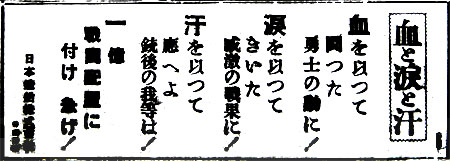 血と涙と汗
血を以つて
闘つた
勇士の勳に！
涙を以つて
きいた
感激の戰果に！
汗を以つて
應へよ
銃後の我等は！
一億
戰鬪配置に
付け 急げ！
日本